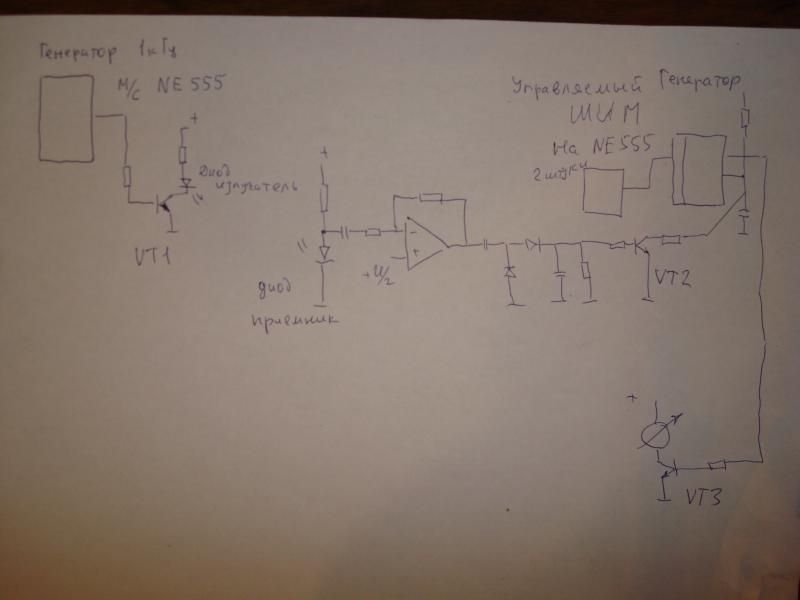 Генератор 1кГц
М/С NE 555
+
Диод
излучатель
VT1
+
диод
приемник
-
+
+U/2
Управляемый Генератор
ШИМ
На NE 555
2 штуки
VT2
+
VT3